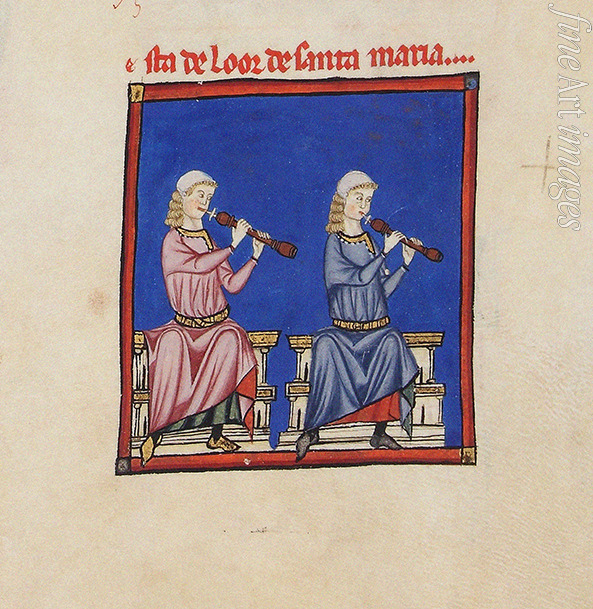 e sta de Loor de santa maria....
fine Art images